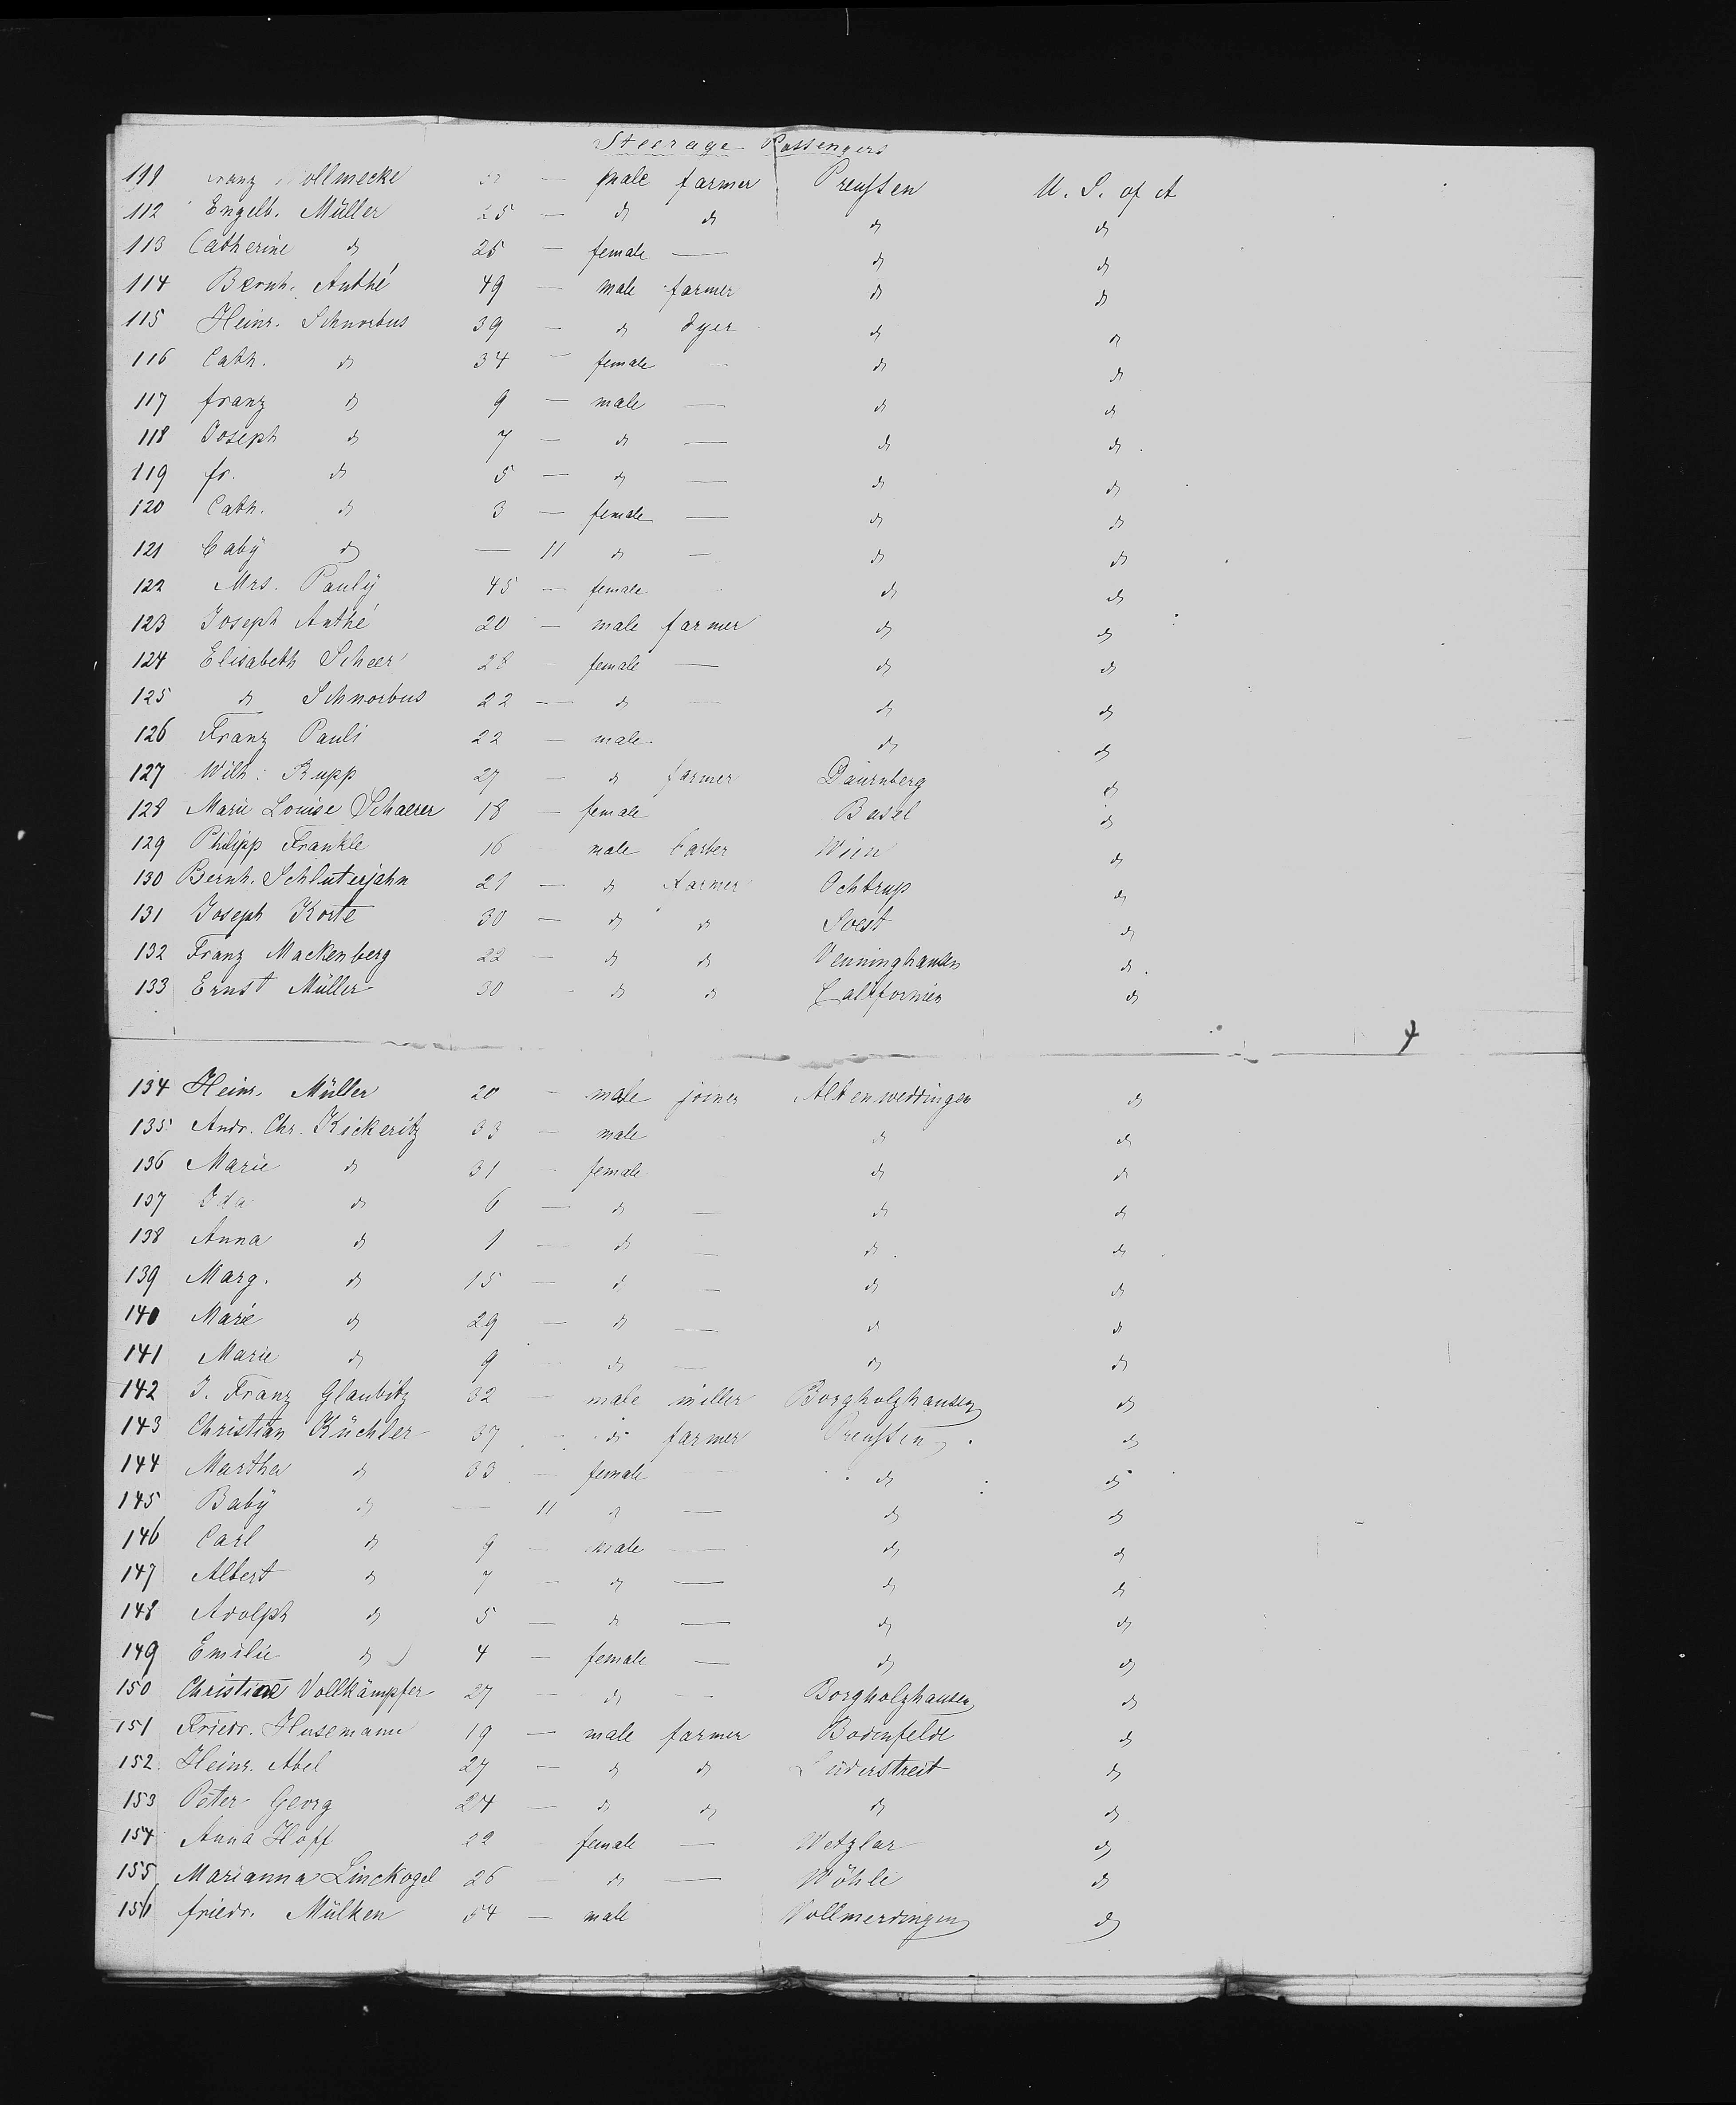 Steerage Passengers
111 Franz ollmecke — male farmer Preußen U. S. of A
112 Engelb. Müller 25 — do do do do
113 Catherine do 25 — female — do do
114 Bernh. Anthé 49 — male farmer do do
115 Heinr. Schnorbus 39 — do dyer do do
116 Cath. do 34 — female — do do
117 franz do 9 — male — do do
118 Joseph do 7 — do — do do
119 fr. do 5 — do — do do
120 Cath. do 3 — female — do do
121 Baby do — 11 do — do do
122 Mrs. Pauly 45 — female — do do
123 Joseph Anthé 20 — male farmer do do
124 Elisabeth Scheer 28 — female — do do
125 do Schnorbus 22 — do — do do
126 Franz Pauli 22 — male do do
127 Wilh: Rupp 27 — do farmer Daurnberg do
128 Marie Louise Schaerer 18 — female Basel do
129 Philipp Frankle 16 male barber Wien do
130 Bernh. Schluterjahn 21 — do farmer Ochtrup do
131 Joseph Korte 30 — do do Soest do
132 Franz Mackenberg 22 — do do Venninghausen do
133 Ernst Müller 30 — do do Californien do
4
134 Heinr. Müller 20 — male joiner Altenweddingen do
135 Andr. Chr. Kickeritz 33 — male do do
136 Marie do 31 — female do do
137 Ida do 6 — do — do do
138 Anna do 1 — do — do do
139 Marg. do 15 — do — do do
140 Marie do 29 — do — do do
141 Marie do 9 — do — do do
142 J. Franz Glaubitz 32 — male miller Borgholzhausen do
143 Christian Küchler 37 — do farmer Preußen do
144 Martha do 33 — female — do do
145 Baby do — 11 do — do do
146 Carl do 9 — male — do do
147 Albert do 7 — do — do do
148 Adolph do 5 — do — do do
149 Emilie do 4 — female — do do
150 Christine Vollkämpfer 27 — do — Borgholzhausen do
151 Friedr. Husemann 19 — male farmer Bodenfelde do
152 Heinr. Abel 27 — do do Lüderstreit do
153 Peter Georg 24 — do do do do
154 Anna Hoff 22 female — Wetzlar do
155 Marianna Linckogel 26 — do — Wöhle do
156 friedr. Mülken 54 — male Vollmerdingen do